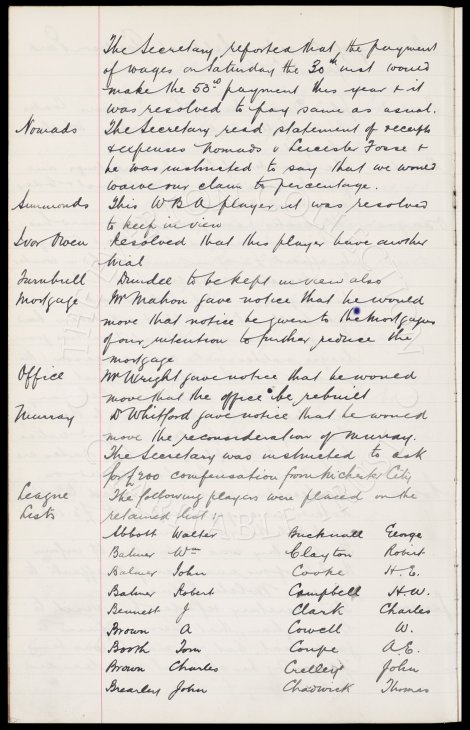 The Secretary reported that the payment
of wages on Saturday the 30th inst would
make the 53rd payment this year & it
was resolved to pay same as usual.
Nomads The Secretary read statement of receipts
& expenses Nomads v Leicester Fosse &
he was instructed to say that we would
waive our claim to percentage.
Simmonds This W B A player it was resolved
to keep in view
Ivor Owen Resolved that this player have another
trial
Turnbull Dundee to be kept in view also
Mortgage Mr Mahon gave notice that he would
move that notice be given to the Mortgagees
of our intention to further reduce the
mortgage
Office Mr Wright gave notice that he would
move that the office be rebuilt
Murray Dr Whitford gave notice that he would
move the reconsideration of Murray.
The Secretary was instructed to ask
for £200 compensation from City
League The following players were placed on the
Lists retained list :
Abbott Walter Bucknall George
Balmer Wm Clayton Robert
Balmer John Cooke H. E.
Balmer Robert Campbell H. W.
Bennett J Clark Charles
Brown A Cowell W.
Booth Tom Coupe A. E.
Brown Charles Crelley John
Brearley John Chadwick Thomas